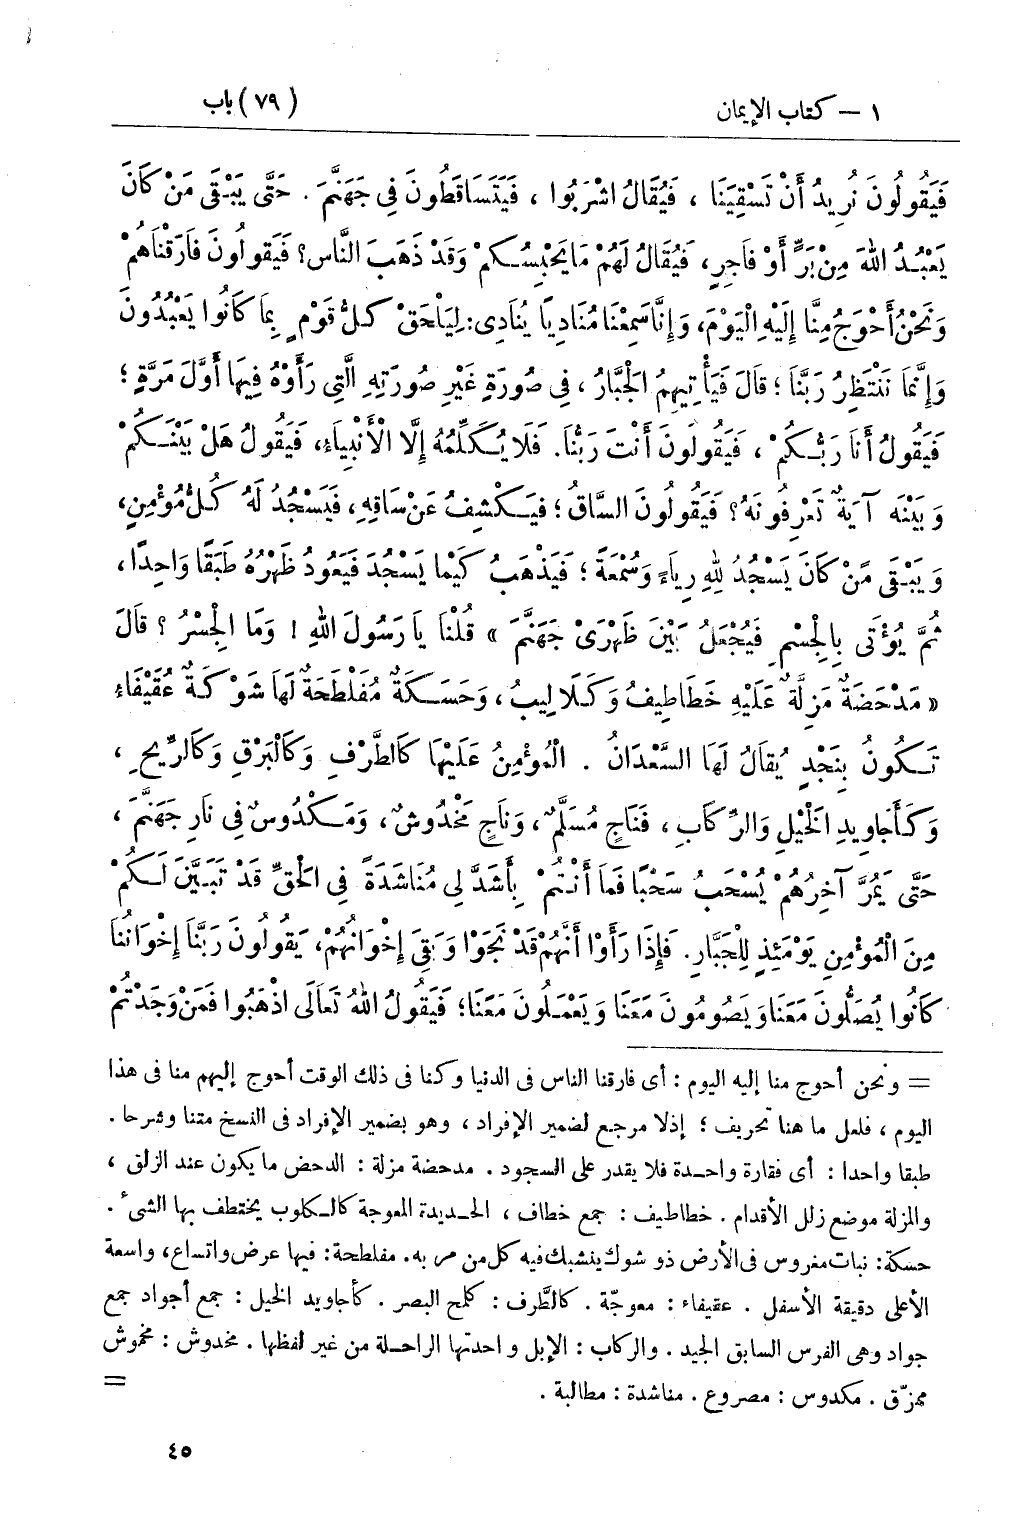 ١ – كتاب الإيمان
(٧٩) باب
فَيَقُولُونَ نُرِيدُ أَنْ تَسْقِيَنَا ، فَيُقَالُ اشْرَبُوا ، فَيَتَسَاقَطُونَ فِى جَهَنَّمَ . حَتَّى يَبْقَى مَنْ كَانَ
يَعْبُدُ اللهَ مِنْ بَرٍّ أَوْ فَاجِرٍ، فَيُقَالُ لَهُمْ مَا يَحْبِسُكُمْ وَقَدْ ذَهَبَ النَّاس؟ فَيَقُولُونَ فَارَقْنَاهُمْ
وَنَحْنُ أَحْوَجُ مِنَّا إِلَيْهِ الْيَوْمَ، وَإِنَّا سَمِعْنَا مُنَادِيًا يُنَادِى: لِيَلْحَقْ كُلُّ قَوْمٍ بِمَا كَانُوا يَعْبُدُونَ
وَإِنَّمَا نَنْتَظِرُ رَبَّنَا ؛ قَالَ فَيَأْتِيهِمُ الْجَبَّارُ ، فِى صُورَةٍ غَيْرِ صُورَتِهِ الَّتِى رَأَوْهُ فِيهَا أَوَّلَ مَرَّةٍ ؛
فَيَقُولُ أَنَا رَبُّكُمْ ، فَيَقُولُونَ أَنْتَ رَبُّنَا. فَلَا يُكَلِّمُهُ إِلَّا الْأَنْبِيَاءِ، فَيَقُولُ هَلْ بَيْنَكُمْ
وَبَيْنَهُ آيَةٌ تَعْرِفُونَهُ؟ فَيَقُولُونَ السَّاقُ ؛ فَيَكْشِفُ عَنْ سَاقِهِ، فَيَسْجُدُ لَهُ كُلُّ مُؤْمِنٍ،
وَيَبْقَى مَنْ كَانَ يَسْجُدُ لِلهِ رِيَاءً وَسُمْعَةً ؛ فَيَذْهَبُ كَيْمَا يَسْجُدَ فَيَعُودُ ظَهْرُهُ طَبَقًا وَاحِدًا،
ثُمَّ يُؤْتَى بِالْجِسْرِ فَيُجْعَلُ بَيْنَ ظَهْرَىْ جَهَنَّمَ » قُلْنَا يَا رَسُولَ اللهِ ! وَمَا الْجِسْرُ ؟ قَالَ
« مَدْحَضَةٌ مَزِلَّةٌ عَلَيْهِ خَطَاطِيفُ وَكَلَالِيبُ، وَحَسَكَةٌ مُفَلْطَحَةٌ لَهَا شَوْكَةٌ عُقَيْفَاءُ
تَكُونُ بِنَجْدٍ يُقَالُ لَهَا السَّعْدَانُ . الْمُؤْمِنُ عَلَيْهَا كَالطَّرْفِ وَكَالْبَرْقِ وَكَالرِّيحِ ،
وَكَأَجَاوِيدِ الْخَيْلِ وَالرِّكَابِ ، فَنَاجٍ مُسَلَّمٌ، وَنَاجٍ مَخْدُوشٌ، وَمَكْدُوسٌ فِى نَارِ جَهَنَّمَ ،
حَتَّى يَمُرَّ آخِرُهُمْ يُسْحَبُ سَحْبًا فَمَا أَنْتُمْ بِأَشَدَّ لِى مُنَاشَدَةً فِى الْحَقِّ قَدْ تَبَيَّنَ لَكُمْ
مِنَ الْمُؤْمِنِ يَوْمَئِذٍ لِلْجَبَّارِ. فَإِذَا رَأَوْا أَنَّهُمْ قَدْ نَجَوْا وَبَقِىَ إِخْوَانُهُمْ، يَقُولُونَ رَبَّنَا إِخْوَانُنَا
كَانُوا يُصَلُّونَ مَعَنَا وَيَصُومُونَ مَعَنَا وَيَعْمَلُونَ مَعَنَا؛ فَيَقُولُ اللهُ تَعَالَى اذْهَبُوا فَمَنْ وَجَدْتُمْ
= ونحن أحوج منا إليه اليوم : أى فارقنا الناس فى الدنيا وكنا فى ذلك الوقت أحوج إليهم منا فى هذا
اليوم ، فلعل ما هنا تحريف ؛ إذلا مرجع لضمير الإفراد ، وهو بضمير الإفراد فى النسخ متنا وشرحا .
طبقا واحدا : أى فقارة واحدة فلا يقدر على السجود . مدحضة مزلة : الدحض ما يكون عند الزلق ،
والمزلة موضع زلل الأقدام . خطاطيف : جمع خطاف ، الحديدة المعوجة كالكلوب يختطف بها الشىء .
حسكة: نبات مغروس فى الأرض ذو شوك ينشبك فيه كل من مر به. مفلطحة: فيها عرض واتساع، واسعة
الأعلى دقيقة الأسفل . عقيفاء : معوجّة . كالطَّرف : كلمح البصر . كأجاويد الخيل : جمع أجواد جمع
جواد وهى الفرس السابق الجيد . والركاب : الإبل واحدتها الراحلة من غير لفظها . مخدوش : مخموش
ممزّق . مكدوس : مصروع . مناشدة : مطالبة .
=
٤٥